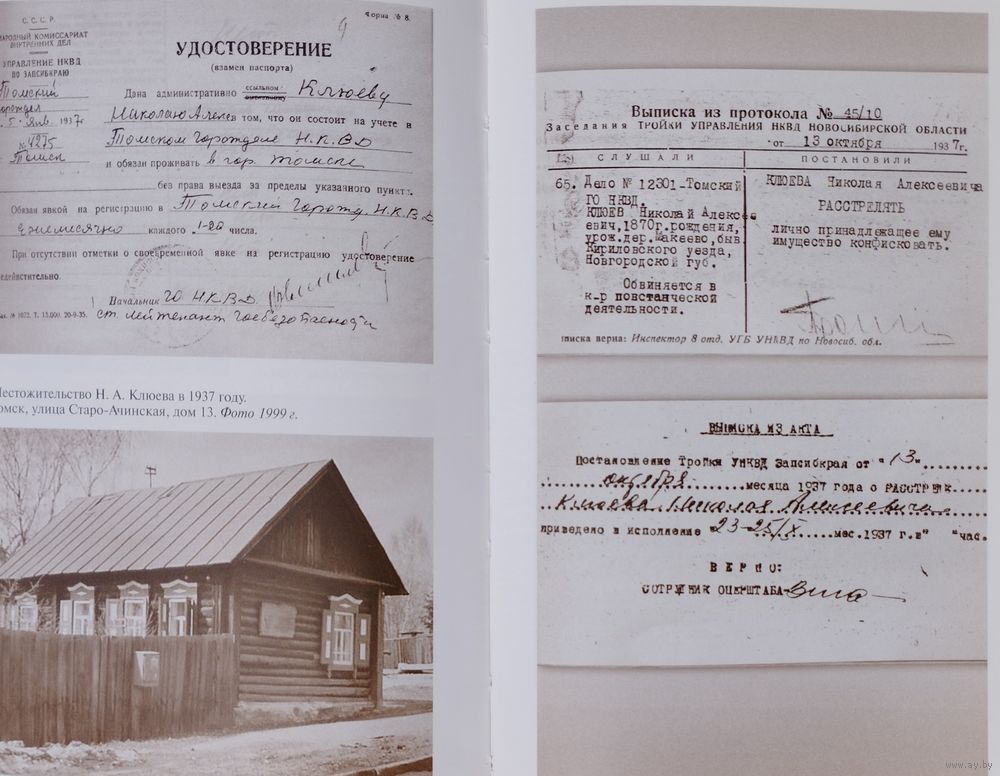 С. С. С. Р.
НАРОДНЫЙ КОМИССАРИАТ
ВНУТРЕННИХ ДЕЛ
УПРАВЛЕНИЕ НКВД
ПО ЗАПСИБКРАЮ
Томский
горотдел
5 Янв. 1937г
№ 4275
Томск
9
Форма № 8.
УДОСТОВЕРЕНИЕ
(взамен паспорта)
Дана административно ссыльном Клюеву
Николаю Алексе в том, что он состоит на учете в
Томском Горотделе Н.К.В.Д
и обязан проживать в гор. Томске
без права выезда за пределы указанного пункта.
Обязан явкой на регистрацию в Томский Горотд. Н.К.В.Д
Ежемесячно каждого 1-20 числа.
При отсутствии отметки о своевременной явке на регистрацию удостоверение
недействительно.
Начальник ГО Н.К.В.Д
ст. лейтенант Госбезопасности
Зак. № 1072. Т. 15.000. 20-9-35.
Местожительство Н. А. Клюева в 1937 году.
Томск, улица Старо-Ачинская, дом 13. Фото 1999 г.
Выписка из протокола № 45/10
Заседания ТРОЙКИ УПРАВЛЕНИЯ НКВД НОВОСИБИРСКОЙ ОБЛАСТИ
от 13 октября 1937г.
СЛУШАЛИ
ПОСТАНОВИЛИ
65. Дело № 12301-Томский
ГО НКВД.
КЛЮЕВ Николай Алексе
евич, 1870г. рождения,
урож. дер. Макеево, быв
Кириловского уезда,
Новгородской губ.
Обвиняется в
к-р повстанческой
деятельности.
КЛЮЕВА Николая Алексеевича
РАССТРЕЛЯТЬ
лично принадлежащее ему
имущество конфисковать.
Выписка верна: Инспектор 8 отд. УГБ УНКВД по Новосиб. обл.
ВЫПИСКА ИЗ АКТА
Постановление Тройки УНКВД Запсибкрая от "13"
октября месяца 1937 года о РАССТРЕЛ
Клюева Николая Алексеевича
приведено в исполнение "23-25/X мес. 1937 г. в" "час.
ВЕРНО:
СОТРУДНИК ОПЕРШТАБА
www.ay.by